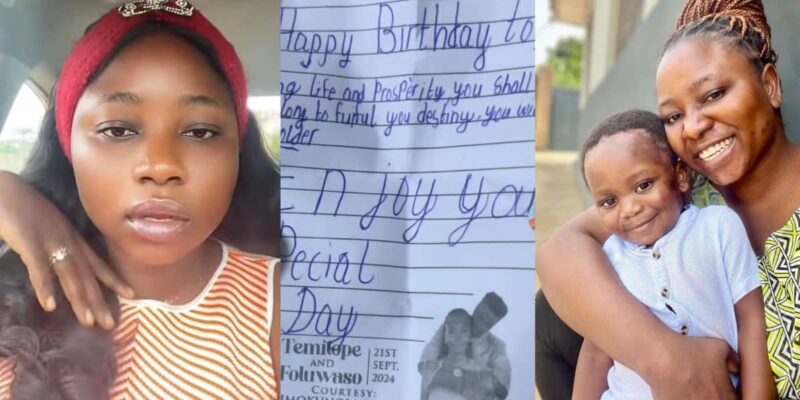 Happy Birthday to
life and Prosperity you shall
long to fulful you destiny, you w
older
Enjoy You
Special
Day
Temitope
AND
Foluwaso
COURTESY:
21ST
SEPT,
2024